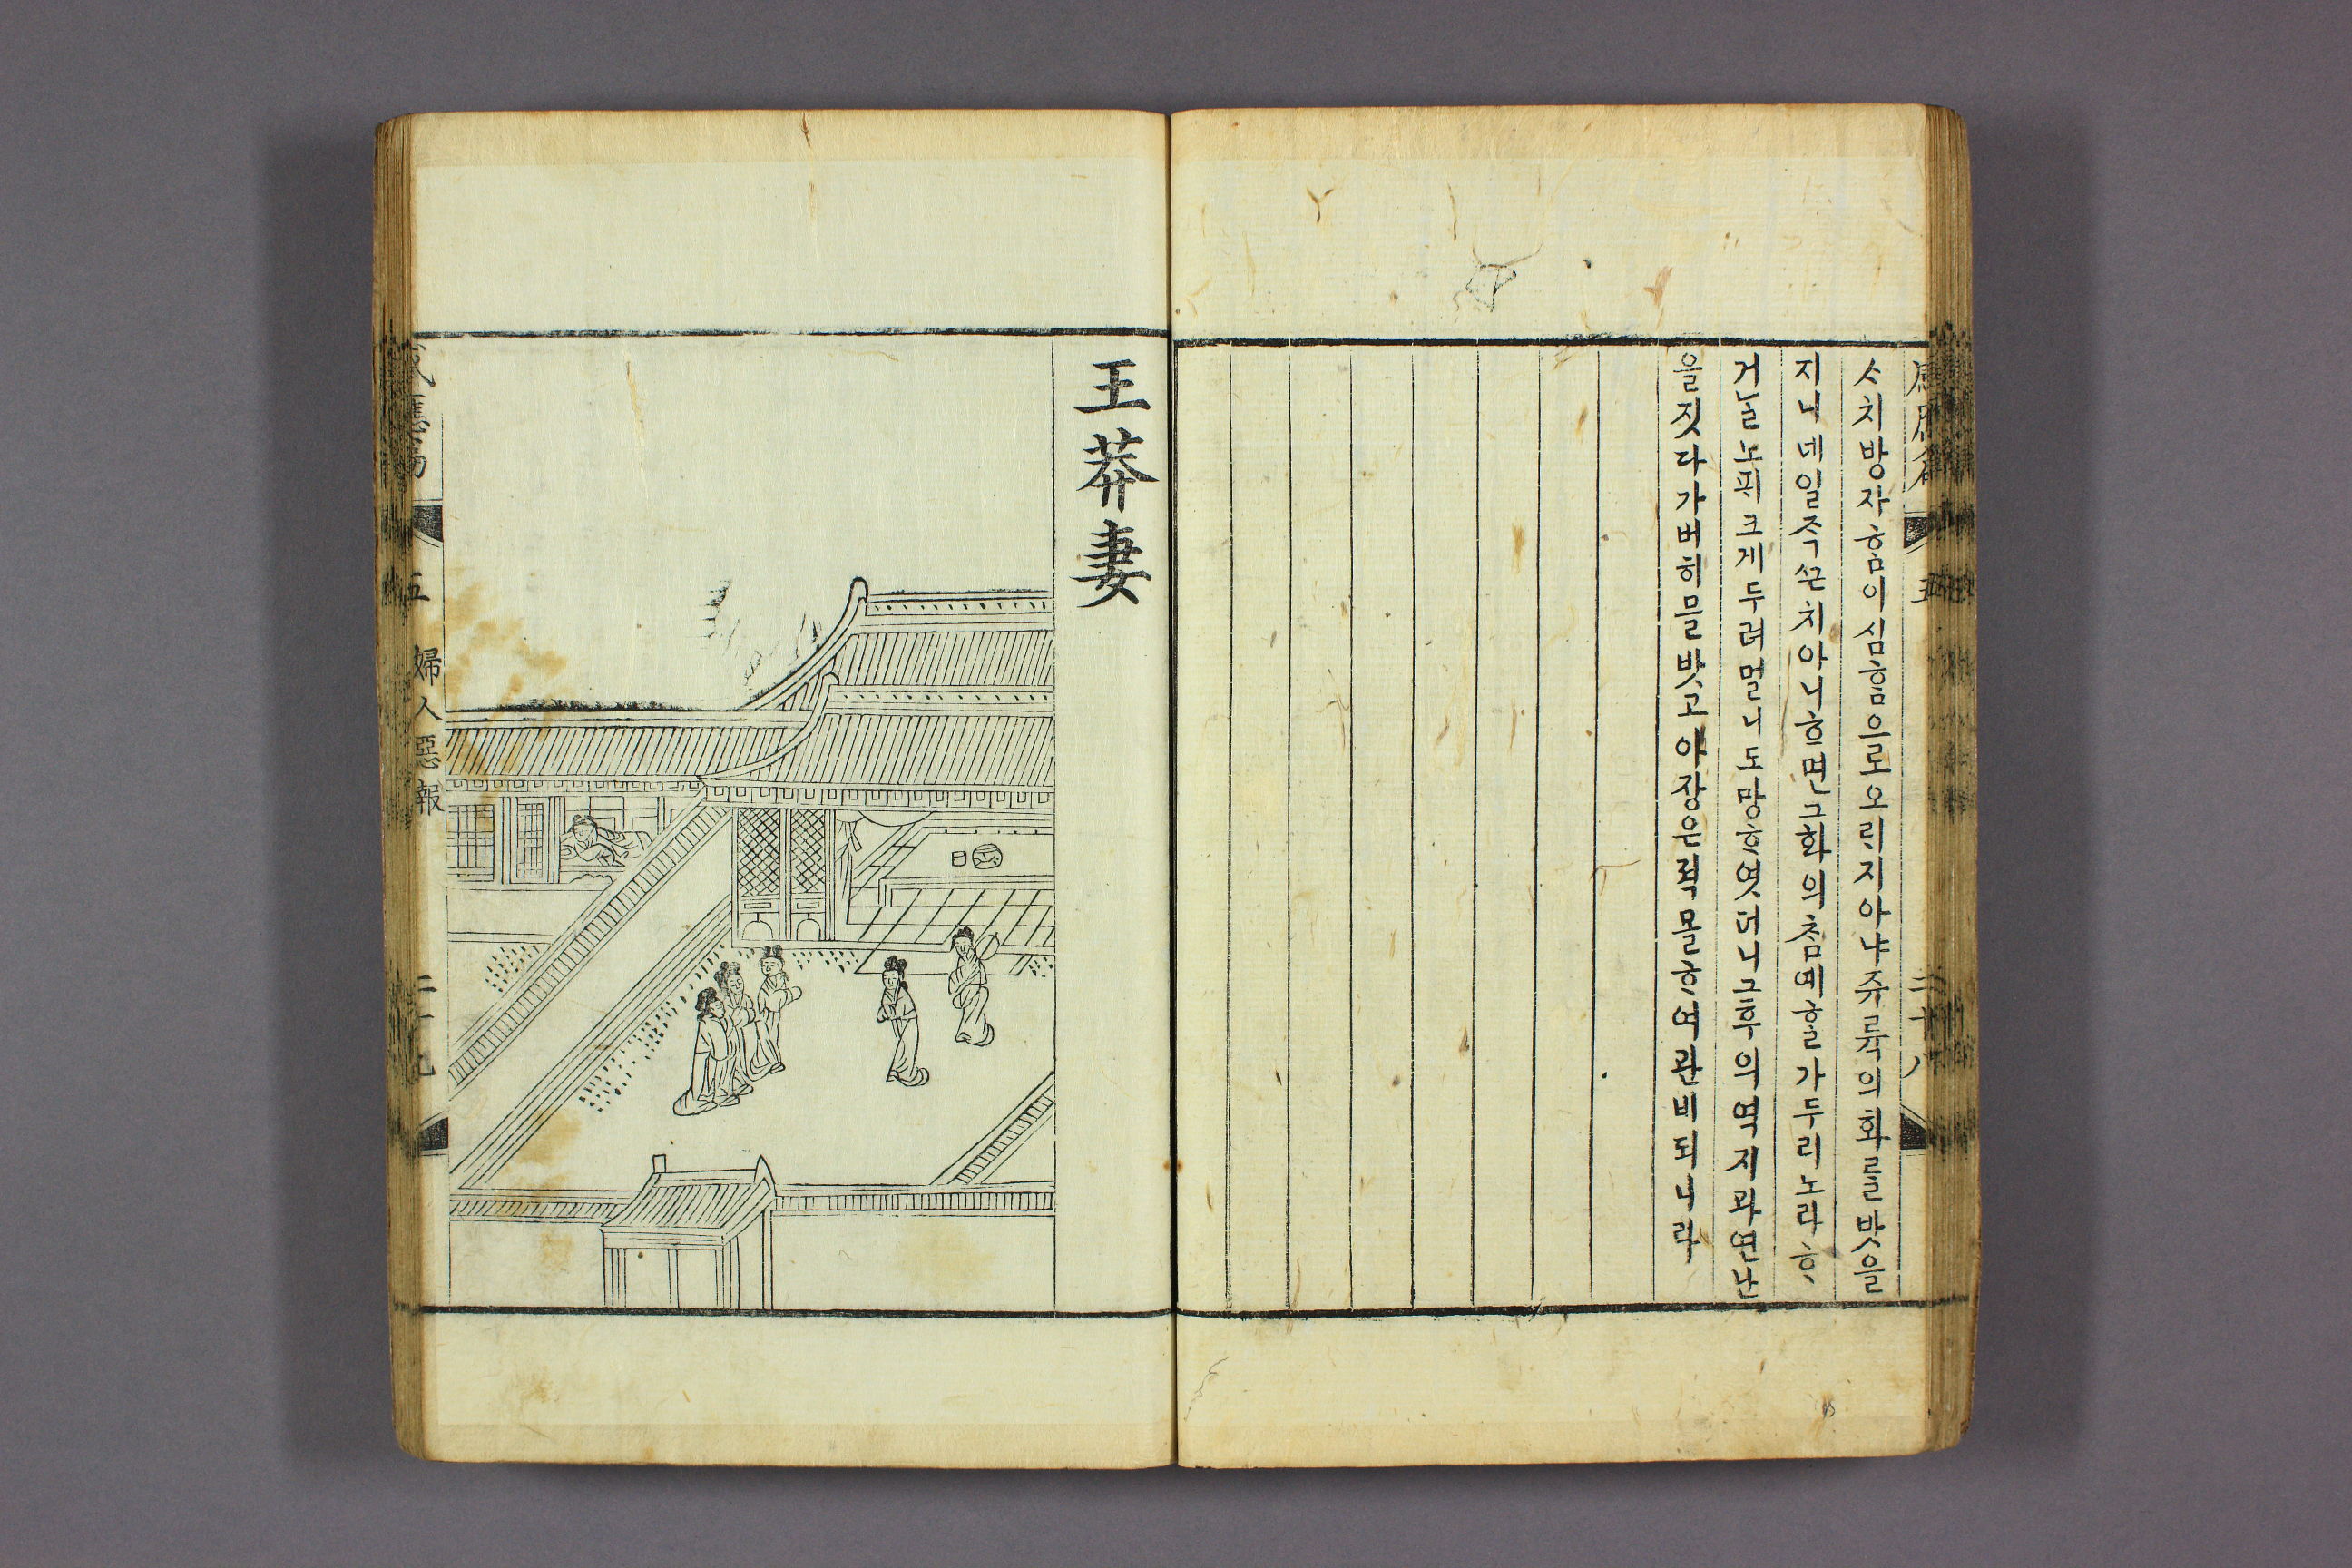 사치방자ᄒᆞᆷ이심ᄒᆞᆷ으로도오리지아냐쥬륙의화를밧을
지니네일즉ᄭᅳᆫ치아니ᄒᆞ면그화의참예ᄒᆞᆯ가두리노라ᄒᆞ
거ᄂᆞᆯ노피크게두려멀니도망ᄒᆞ엿더니그후의역지과연난
을짓다가버히믈밧고아장은젹몰ᄒᆞ여관비되니라
王莽妻
五 婦人惡報